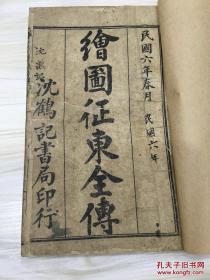 民國六年春月
民國六年
繪圖征東全傳
沈鶴記書局印行